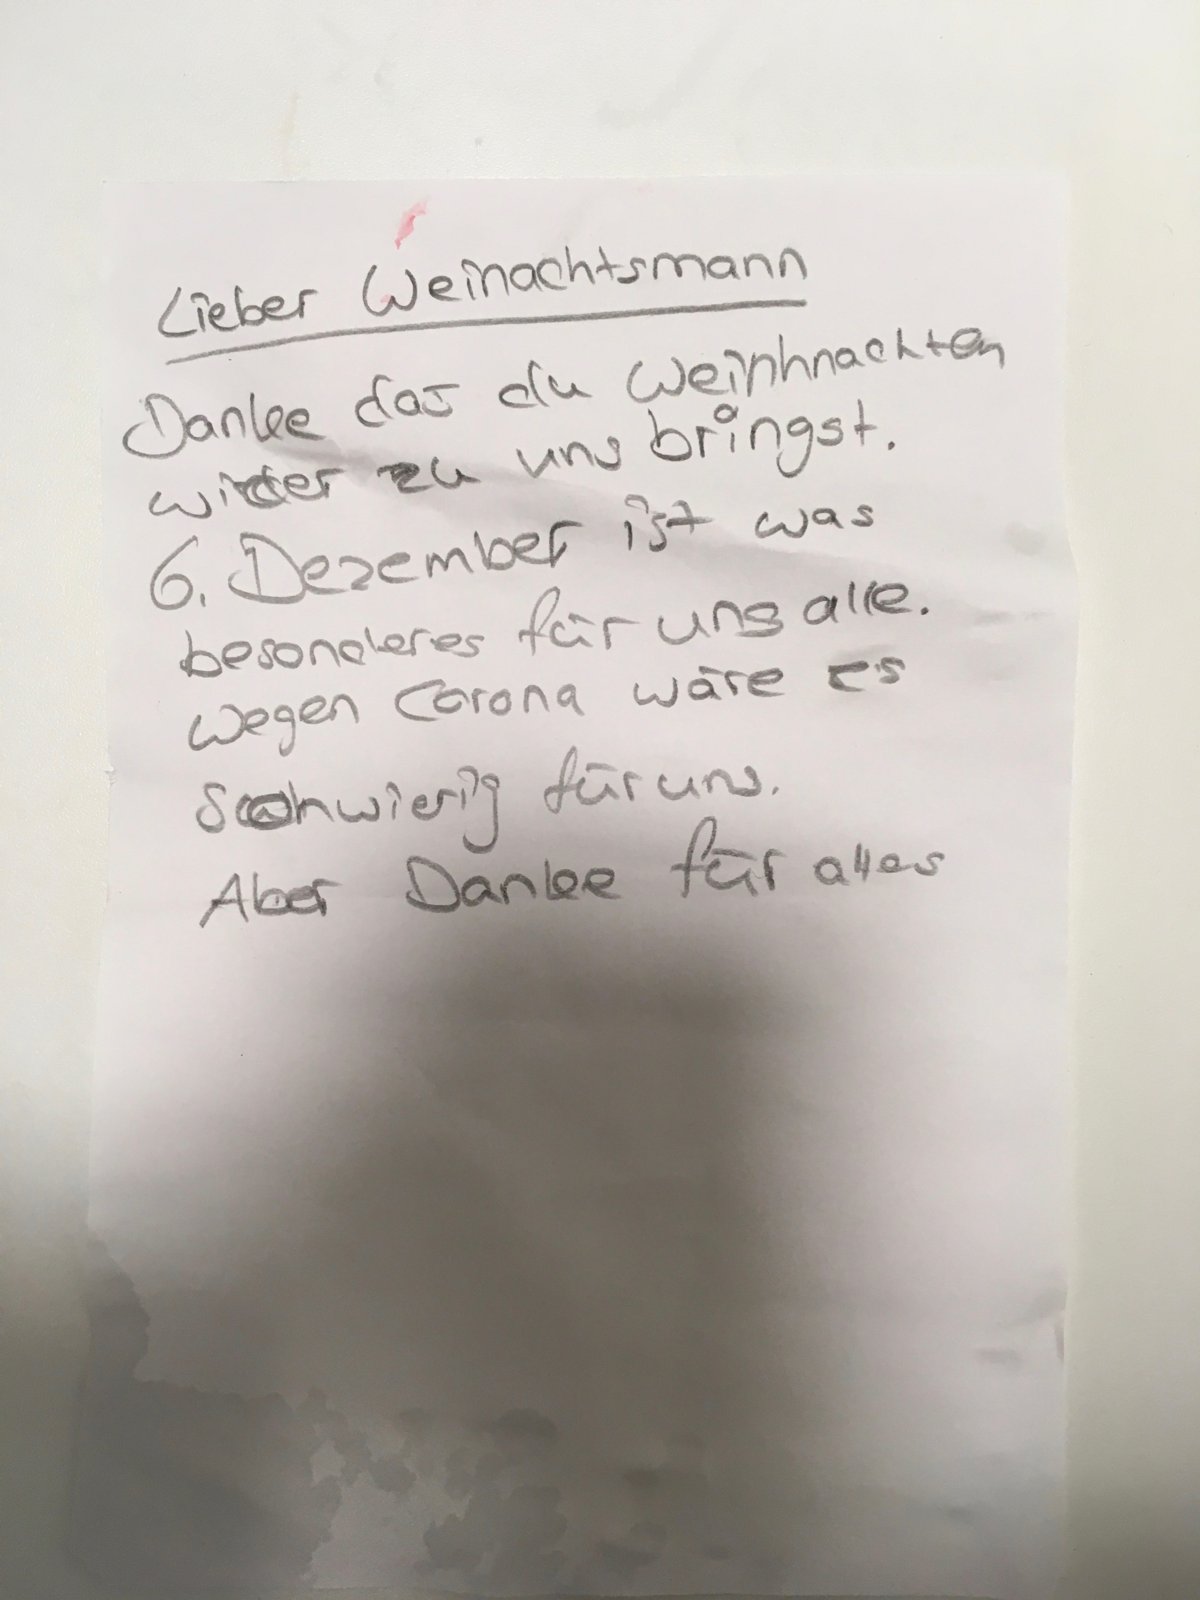 Lieber Weinachtsmann
Danke das du weinhnachten
wider zu uns bringst.
6. Dezember ist was
besonderes für uns alle.
wegen Corona wäre es
schwierig für uns.
Aber Danke für alles